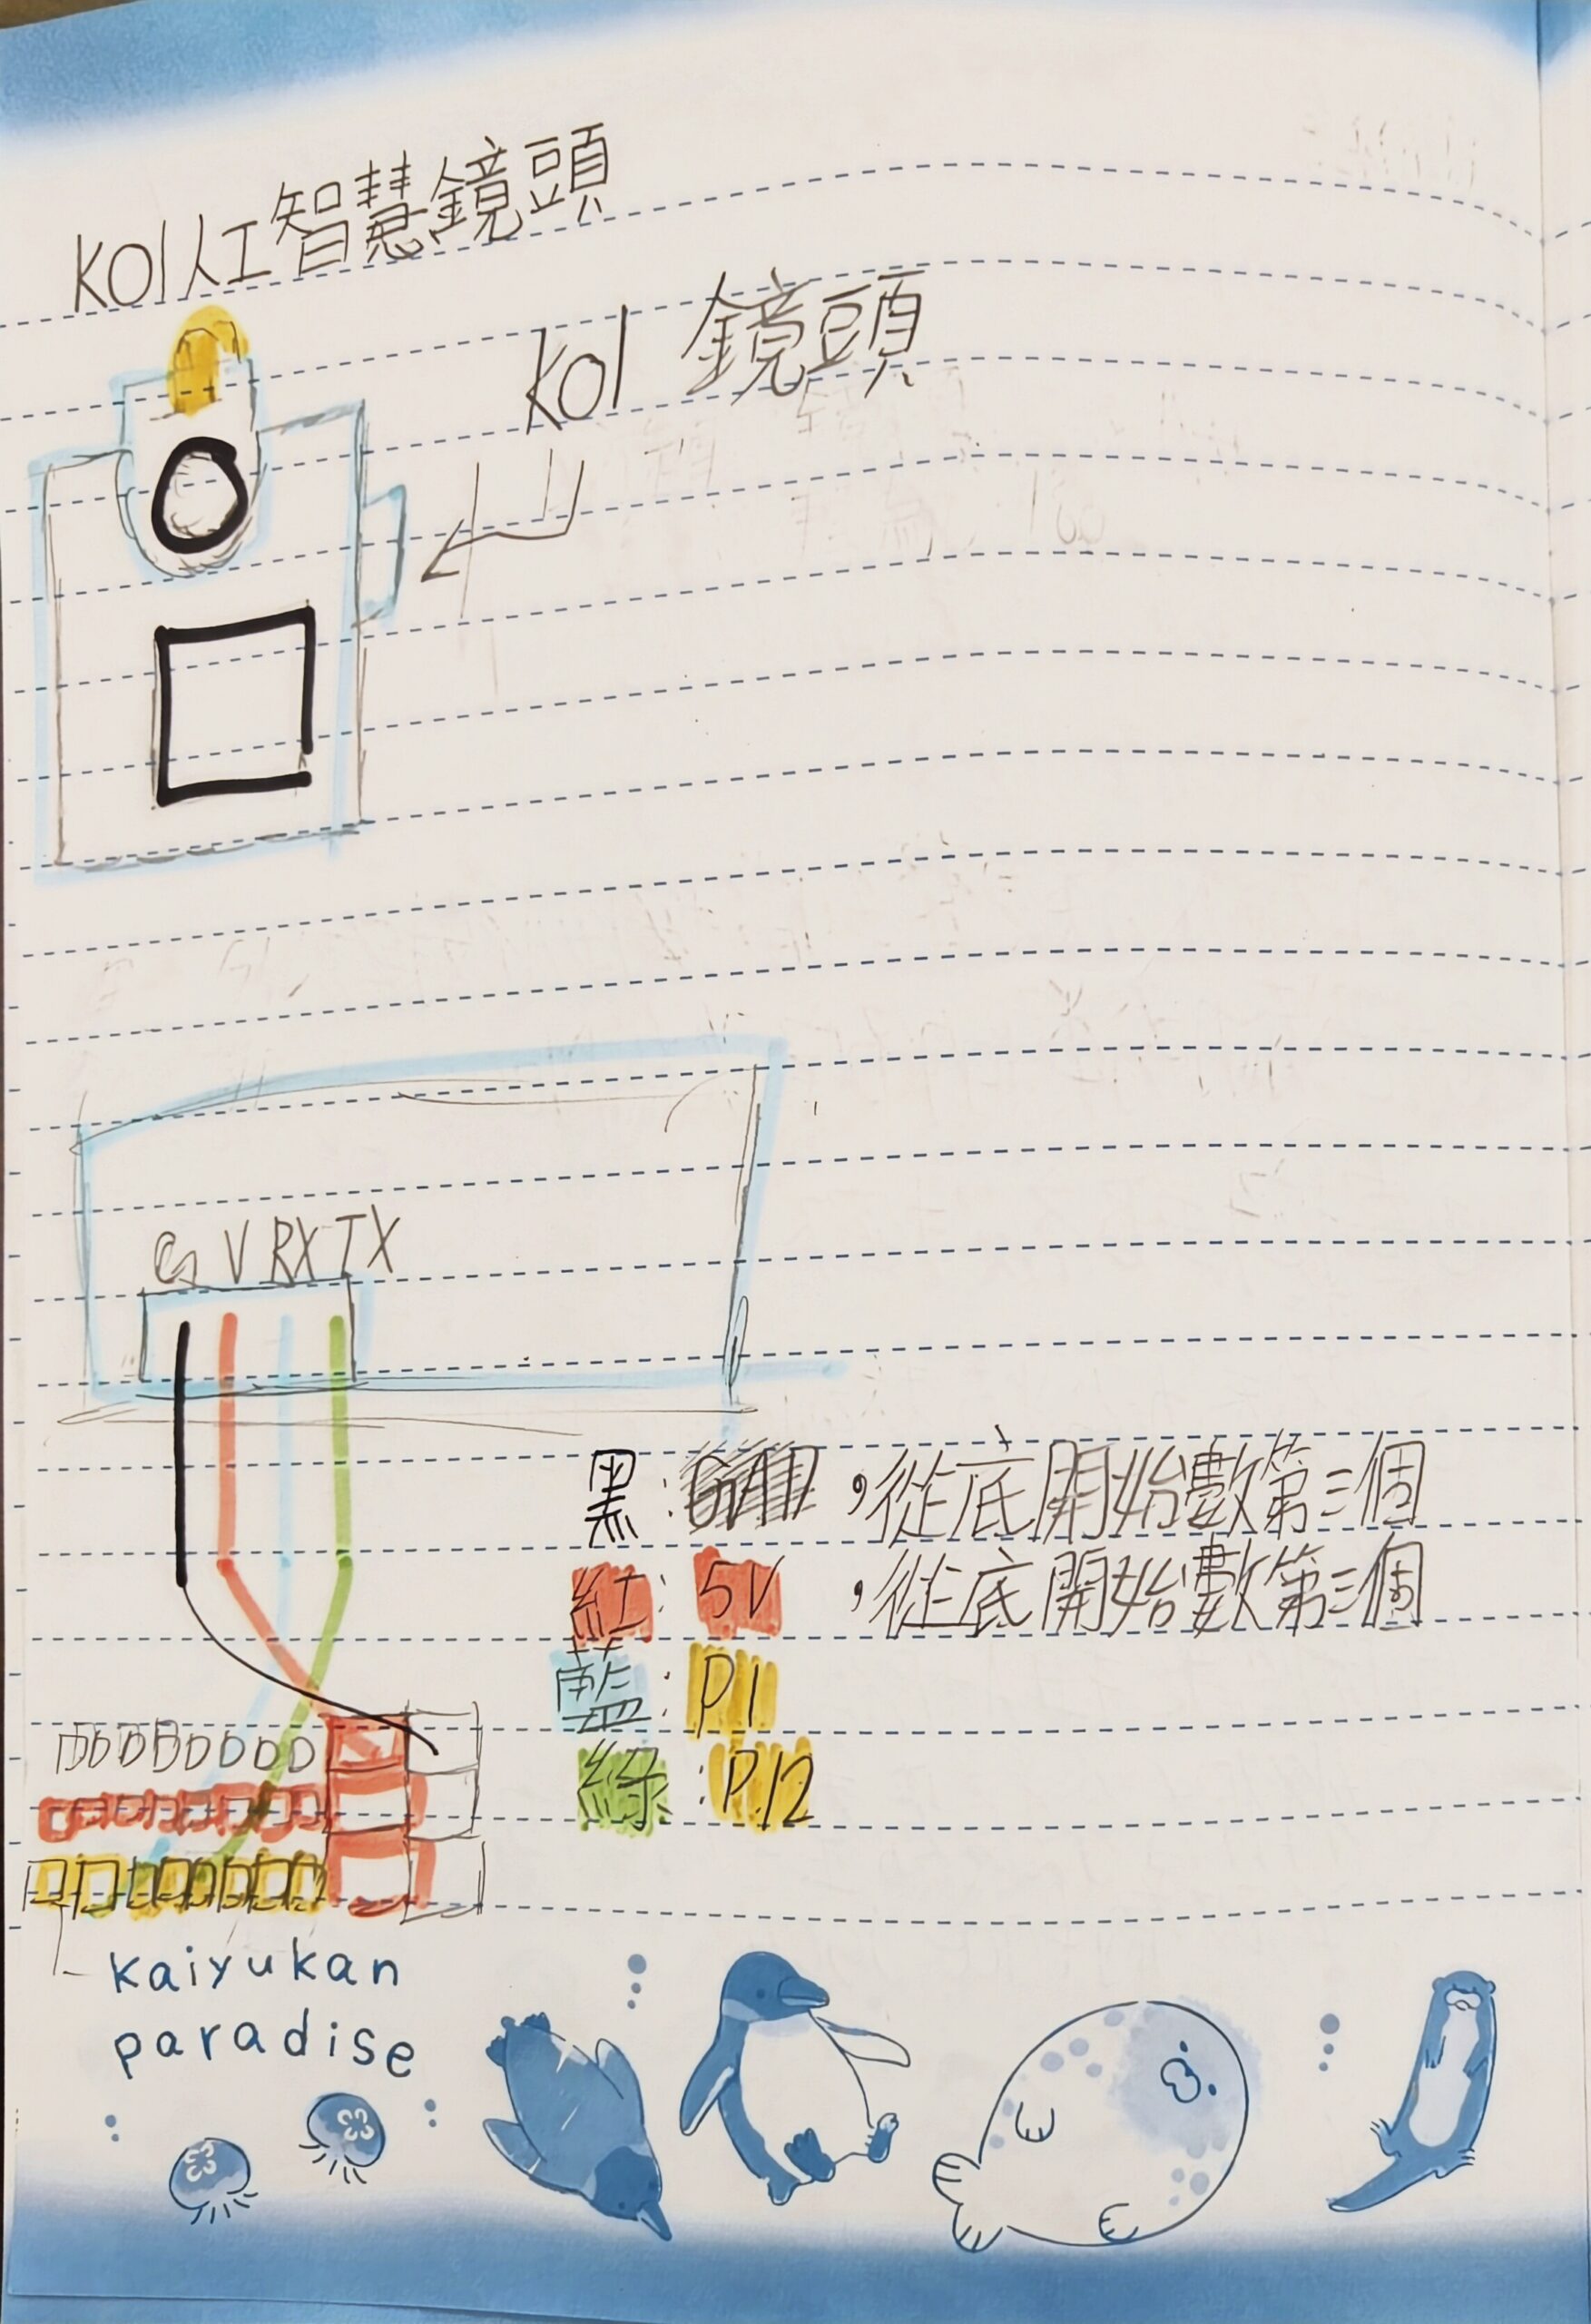 KOI人工智慧鏡頭
KOI 鏡頭
G V RX TX
黑:GND,從底開始數第三個
紅:5V,從底開始數第三個
藍:P1
綠:P12
kaiyukan
paradise